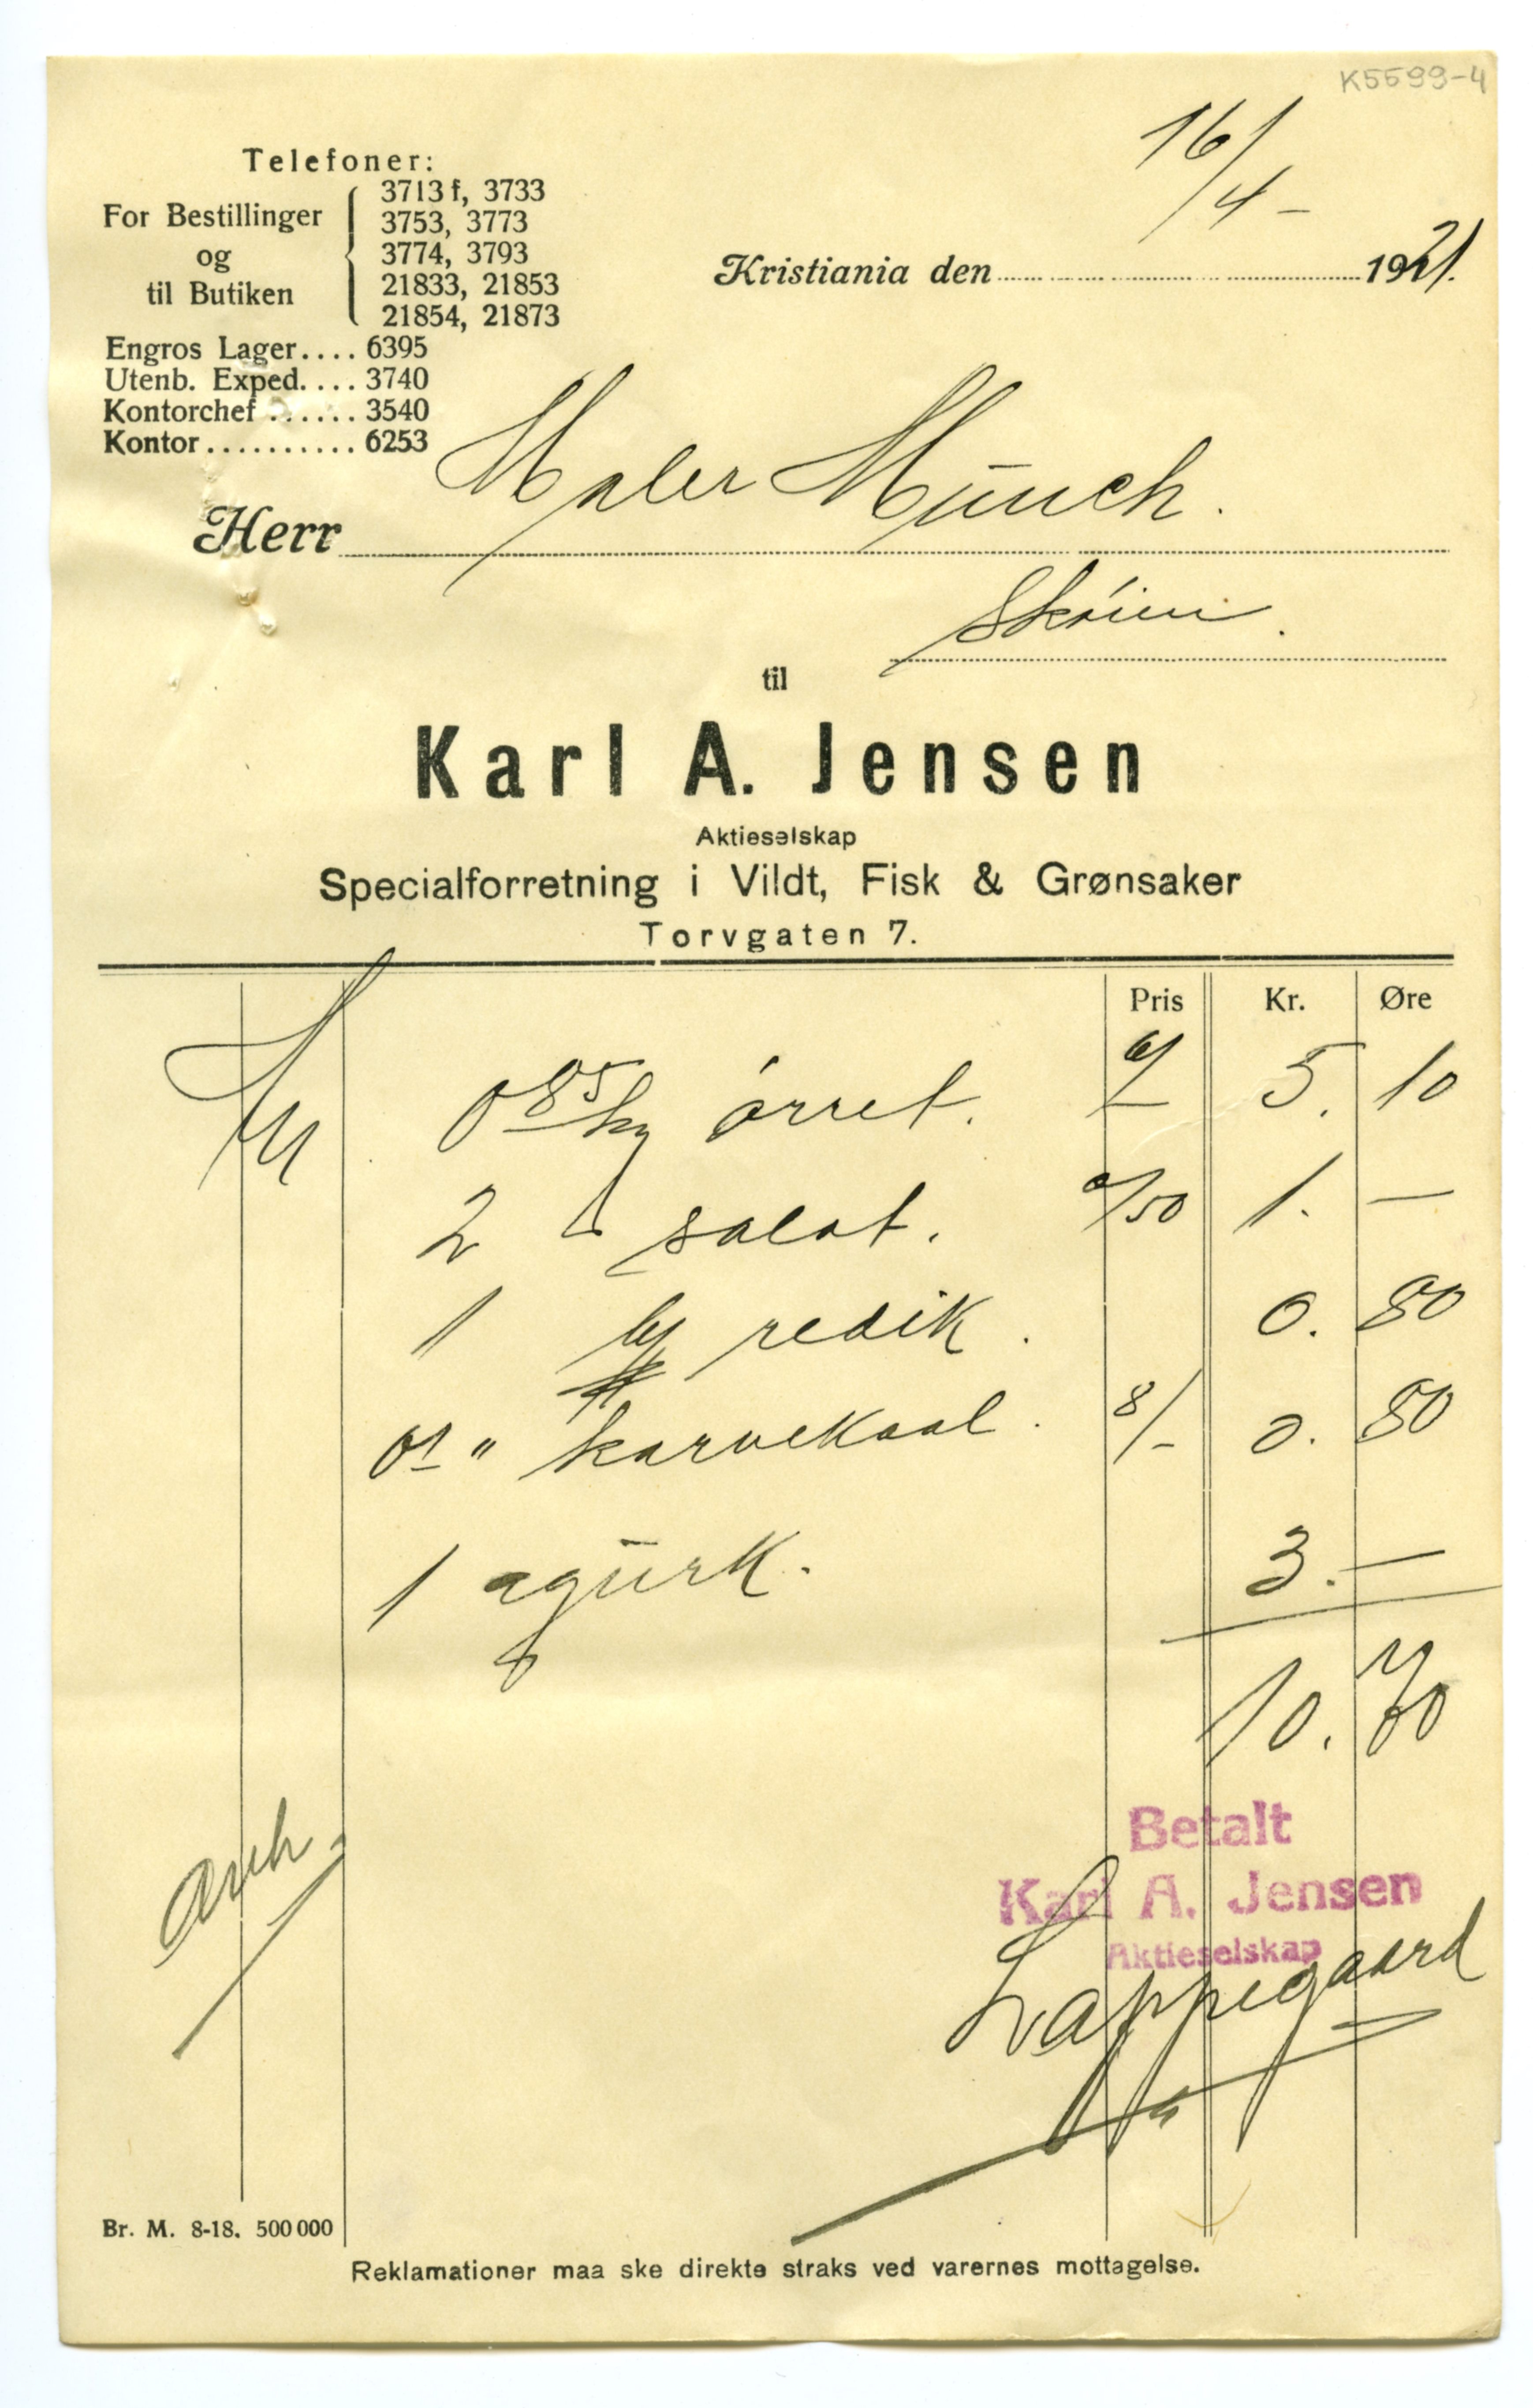 K5599-4
Telefoner:
For Bestillinger og til Butiken
3713 f, 3733
3753, 3773
3774, 3793
21833, 21853
21854, 21873
Engros Lager.... 6395
Utenb. Exped. ... 3740
Kontorchef ...... 3540
Kontor .......... 6253
16/4 –
Kristiania den 1921.
Herr Maler Munch.
Skøien.
til
Karl A. Jensen
Aktieselskap
Specialforretning i Vildt, Fisk & Grønsaker
Torvgaten 7.
Pris Kr. Øre
0 85 kg ørret. 6/– 5. 10
2 salat. a/50 1. —
1 bt redik. 0. 80
01 " karvekaal. 8/– 0. 80
1 agurk. 3. —
10. 70
Betalt
Karl A. Jensen
Aktieselskap
Lappegaard
Br. M. 8-18. 500 000
Reklamationer maa ske direkte straks ved varernes mottagelse.